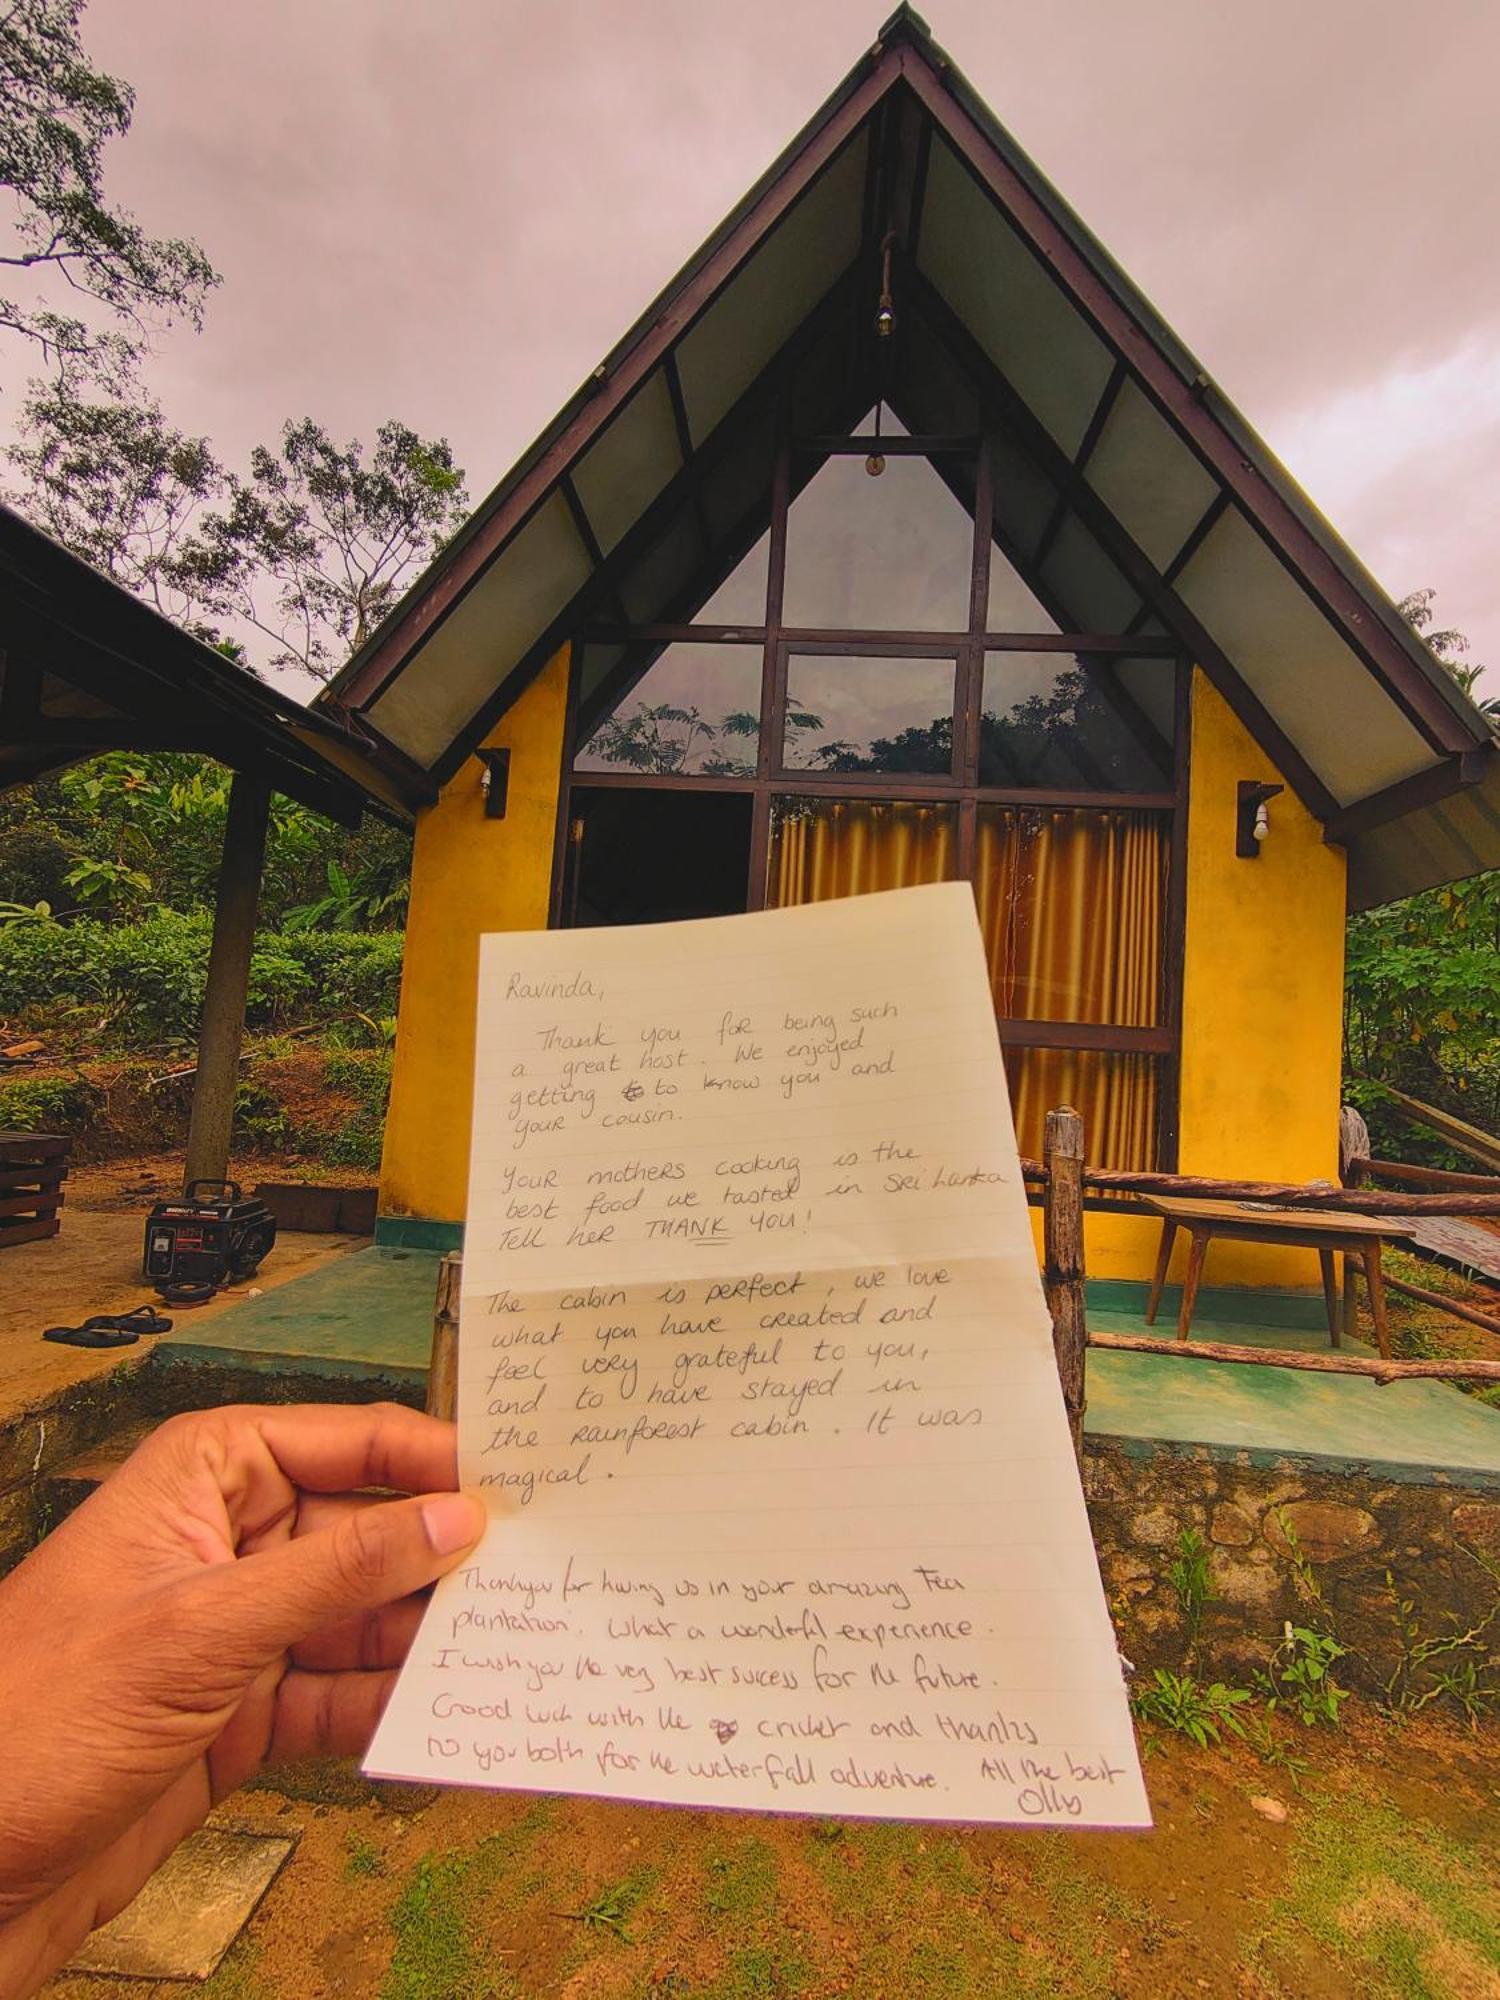 Ravinda,
Thank you for being such
a great host. We enjoyed
getting to know you and
your cousin.
Your mothers cooking is the
best food we tasted in Sri Lanka
Tell her THANK YOU!
The cabin is perfect, we love
what you have created and
feel very grateful to you,
and to have stayed in
the rainforest cabin. It was
magical.
Thankyou for having us in your amazing Tea
plantation. What a wonderful experience.
I wish you the very best success for the future.
Good luck with the cricket and thanks
to you both for the waterfall adventure. All the best
Olly